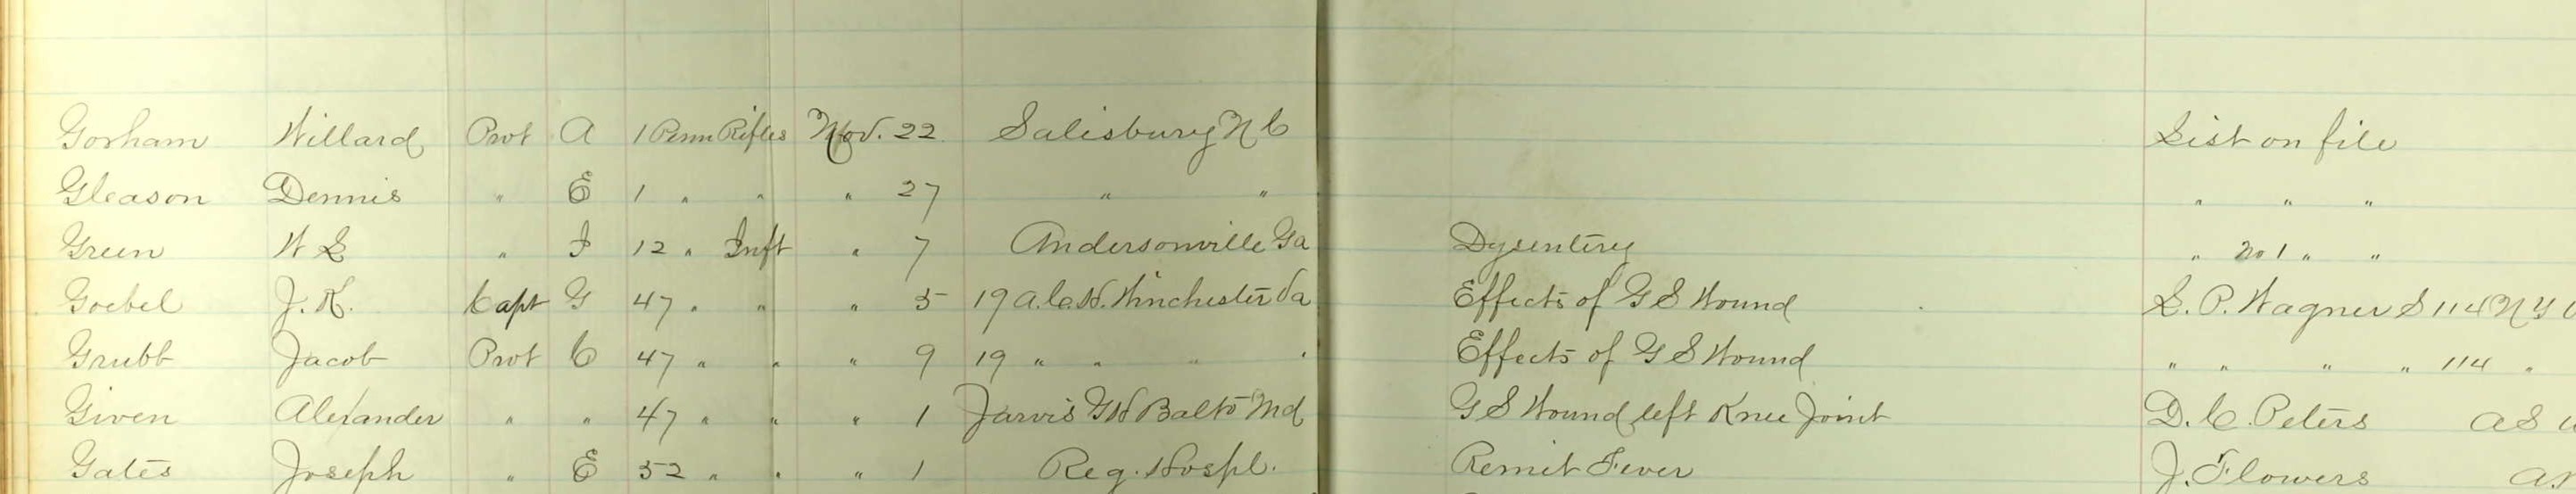 Gorham Willard Prvt A 1 Penn Rifles Nov. 22 Salisbury N C List on file
Gleason Dennis " E 1 " " " 27 " " " " "
Green W L " I 12 " Inft " 7 Andersonville Ga Dysentery " No 1 " "
Goebel J. K. Capt G 47 " " " 5 19 A.C.H. Winchester Va Effects of G S Wound L. P. Wagner S 114 N Y
Grubb Jacob Prvt C 47 " " " 9 19 " " " " Effects of G S Wound " " " " 114 "
Given Alexander " " 47 " " " 1 Jarvis G H Balto Md G S Wound left Knee Joint D. C. Peters A S
Gates Joseph " E 52 " " " 1 Reg. Hospl. Remit Fever J. Flowers